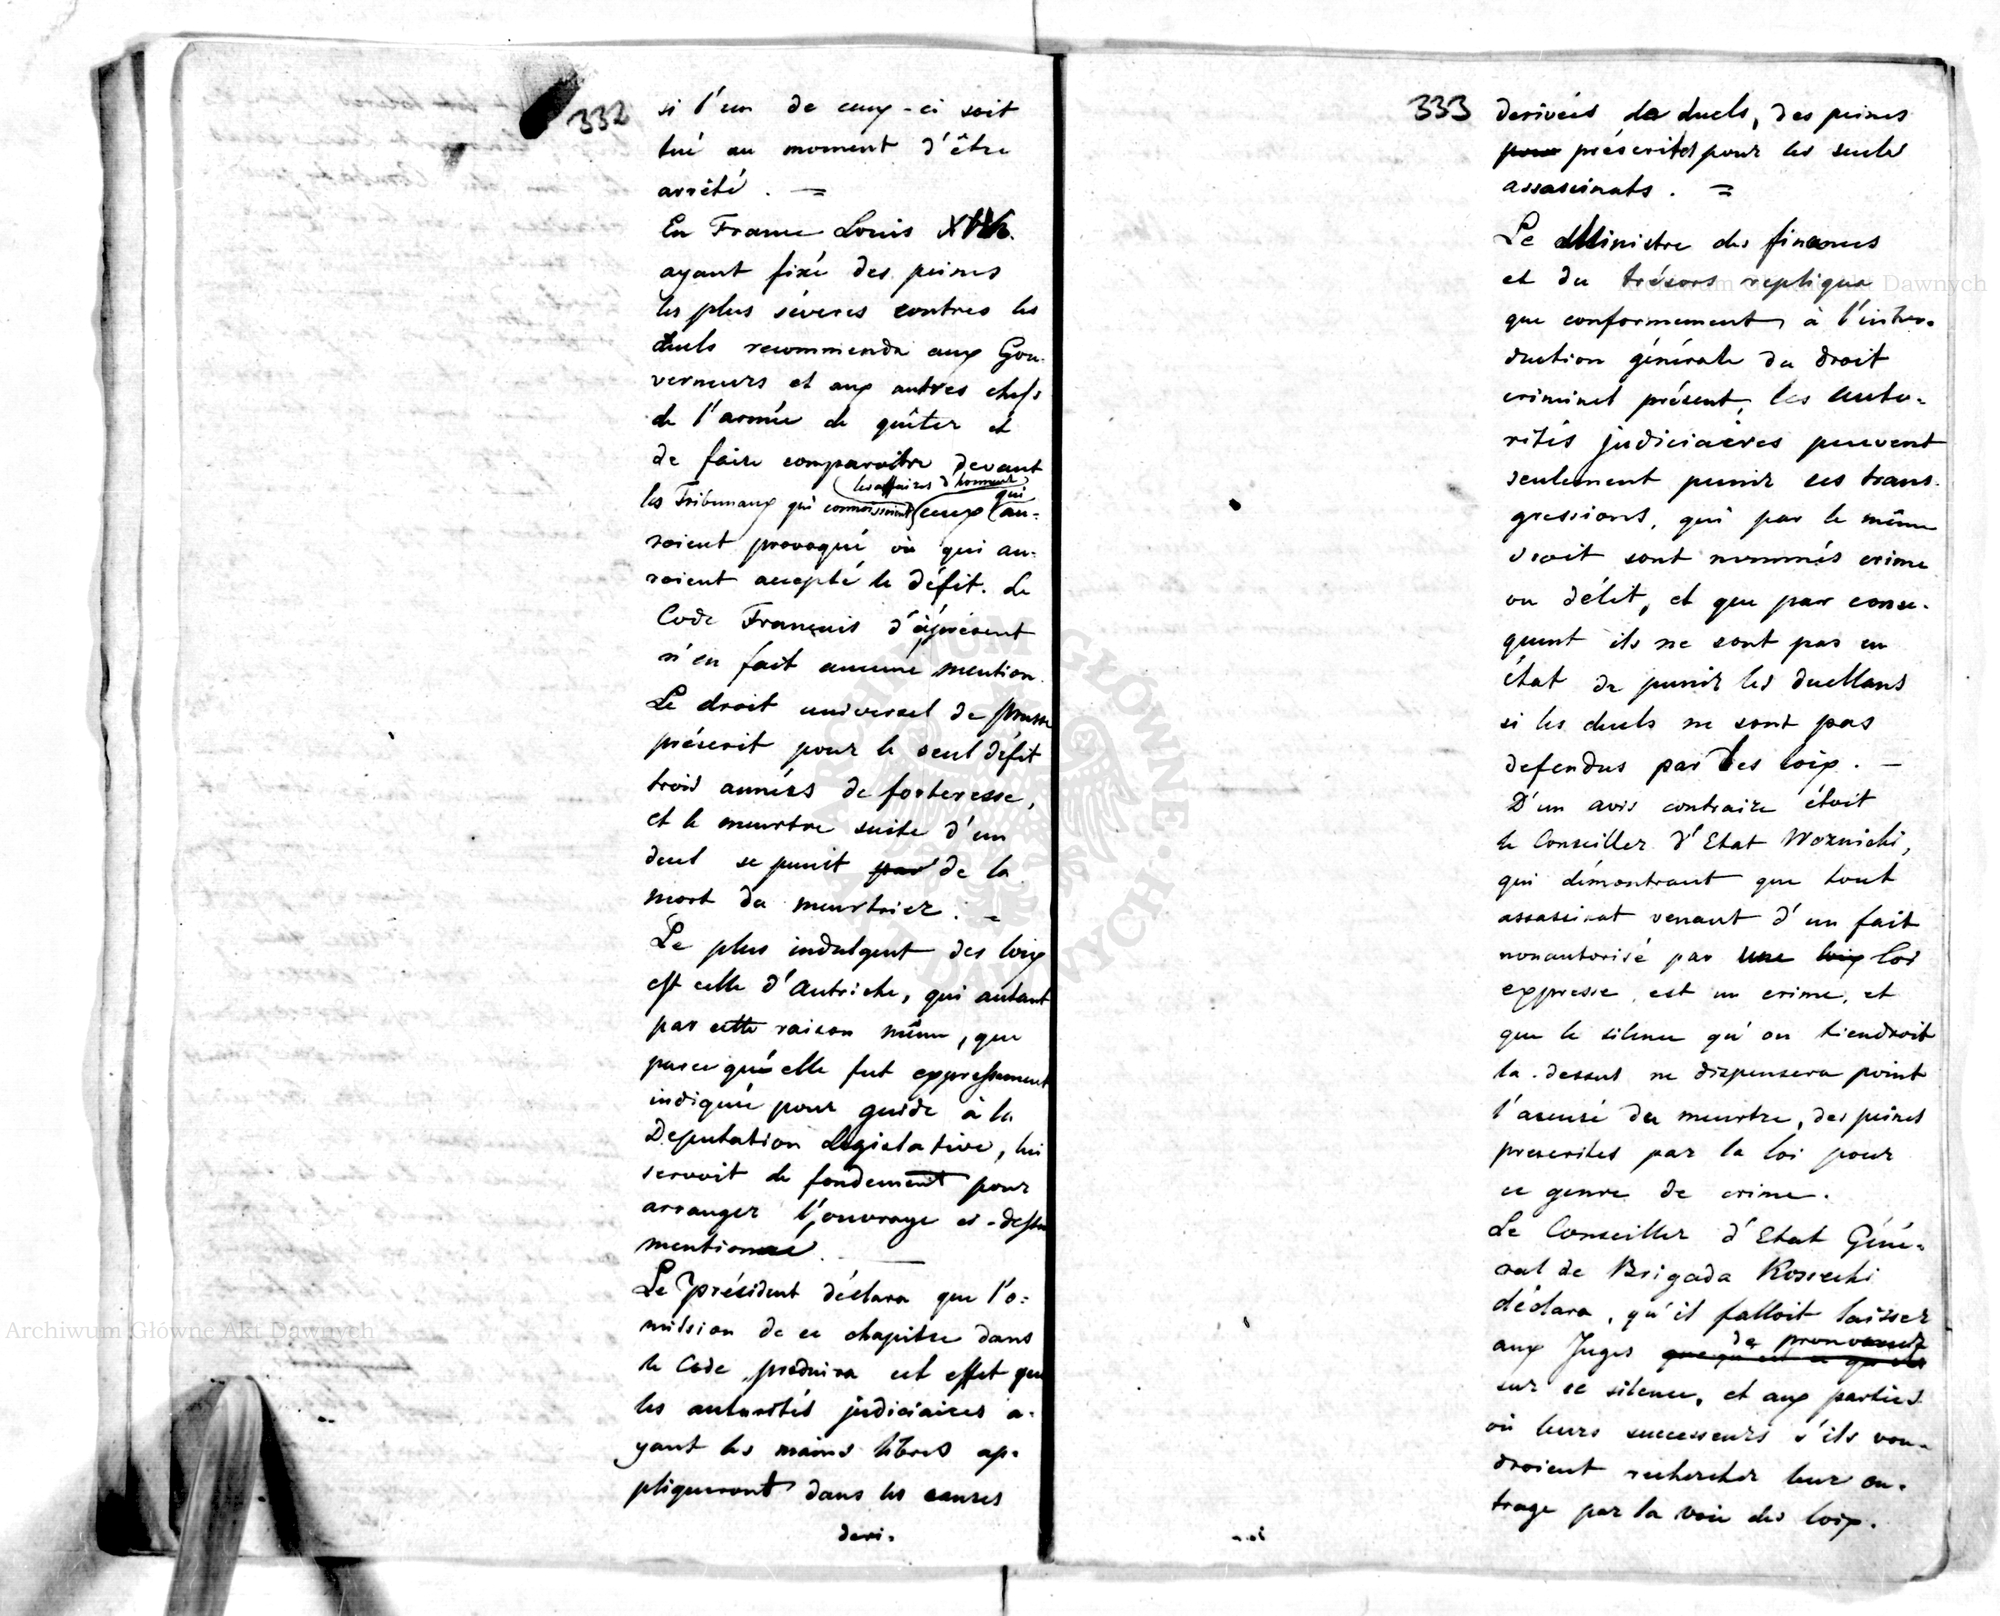 332
si l'un de ceux-ci soit
tué au moment d'être
arrêté. =
En France Louis
ayant fixé des peines
les plus séveres contres les
duels recommenda aux Gou-
verneurs et aux autres chefs
de l'armée de guêter et
de faire comparoitre devant
les affaires d'honneur
les Tribunaux qui connoissoient ceux qui au-
roient provoqué où qui au-
roient accepté le défit. Le
Code Français d'àprésent
n'en fait aucune mention.
Le droit universel de Prusse
préscrit pour le seul défit
trois années de forteresse,
et le meurtre suite d'un
duel se punit par de la
mort du meurtrier. =
Le plus indulgent des loix
est celle d'Autriche, qui autant
par cette raison même, que
parcequ'elle fut expressement
indiquée pour guide à la
Deputation Legislative, lui
servoit de fondement pour
arranger l'ouvrage ci-dessu
mentionné. —
Le Président déclara que l'o-
mission de ce chapitre dans
le Code produira cet effet que
les autorités judiciaires a-
yant les mains libres ap-
pliqueront dans les causes
deri-
333
derivées de duels, des peines
pour préscrites pour les seuls
assassinats. =
Le Ministre des finances
et du trésors repliqua
que conformement à l'intro-
duction générale du droit
criminel présent, les auto-
rités judiciaires peuvent
seulement punir ces trans-
gressions, qui par le même
droit sont nommés crime
ou délit, et que par conse-
quent ils ne sont pas en
état de punir les duellans
si les duels ne sont pas
defendus par les loix. —
D'un avis contraire étoit
le Conseiller d'Etat Woznicki,
qui démontrant que tout
assassinat venant d'un fait
nonautorisé par une loix loi
expresse est un crime, et
que le silence qu'on tiendroit
la-dessus ne dispensera point
l'accusé du meurtre, des peines
prescrites par la loi pour
ce genre de crime.
Le Conseiller d'Etat Géné-
ral de Brigade Kossecki
déclara, qu'il falloit laisser
aux Juges de prononcer
sur ce silence, et aux parties
où leurs successeurs s'ils vou-
droient rechercher leur ou-
trage par la voie des loix.
Archiwum Główne Akt Dawnych
Archiwum Główne Akt Dawnych
ARCHIWUM GŁÓWNE AKT DAWNYCH